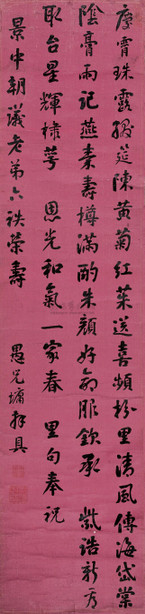 序霄珠露綴筵陳黃菊紅萸送喜頻枌里清風傳海岱棠
陰膏雨記燕秦壽樽滿酌朱顏好命服欽承紫誥新方
耴台星輝棣萼 恩光和氣一家春 里句奉祝
景中朝議老弟六袟榮壽
愚兄墉拜具